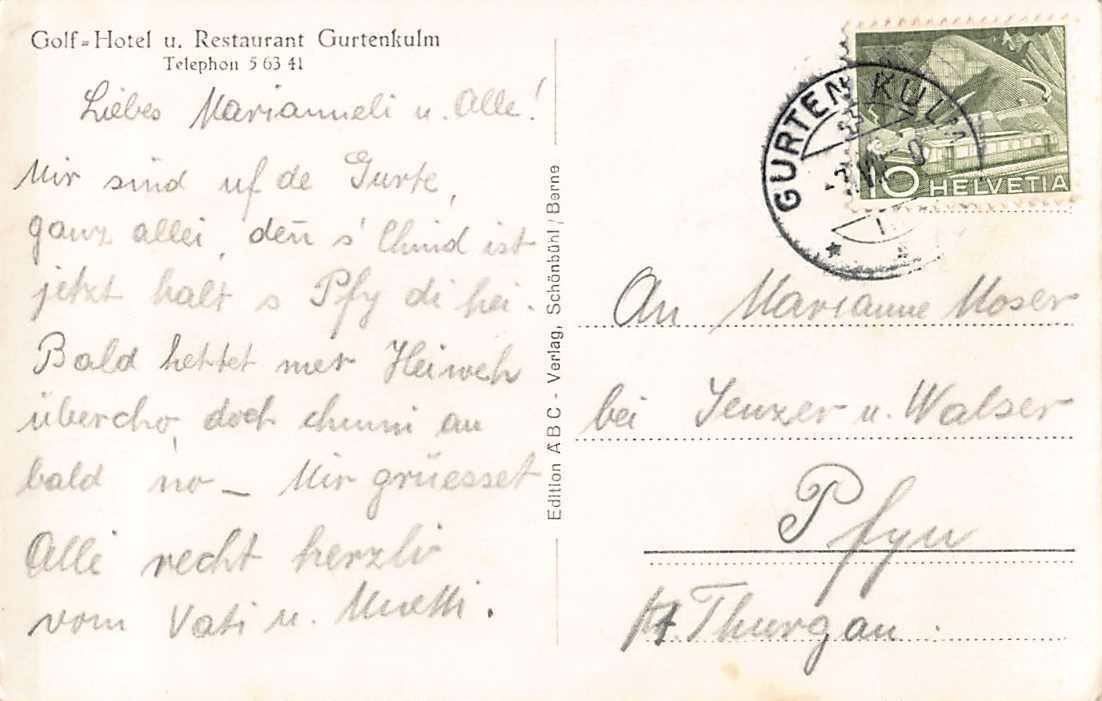 Golf-Hotel u. Restaurant Gurtenkulm
Telephon 5 63 41
Liebes Marianneli u. Alle!
Mir sind uf de Gurte,
ganz allei, deñ s'Chind ist
jetzt halt s Pfy di hei.
Bald hettet mer Heiweh
übercho, doch chunni au
bald no – Mir grüesset
Alli recht herzli
vom Vati u. Muetti.
Edition ABC - Verlag, Schönbühl/Berne
GURTENKULM
10 HELVETIA
An Marianne Moser
bei Jenzer u. Walser
Pfyn
Kt. Thurgau.